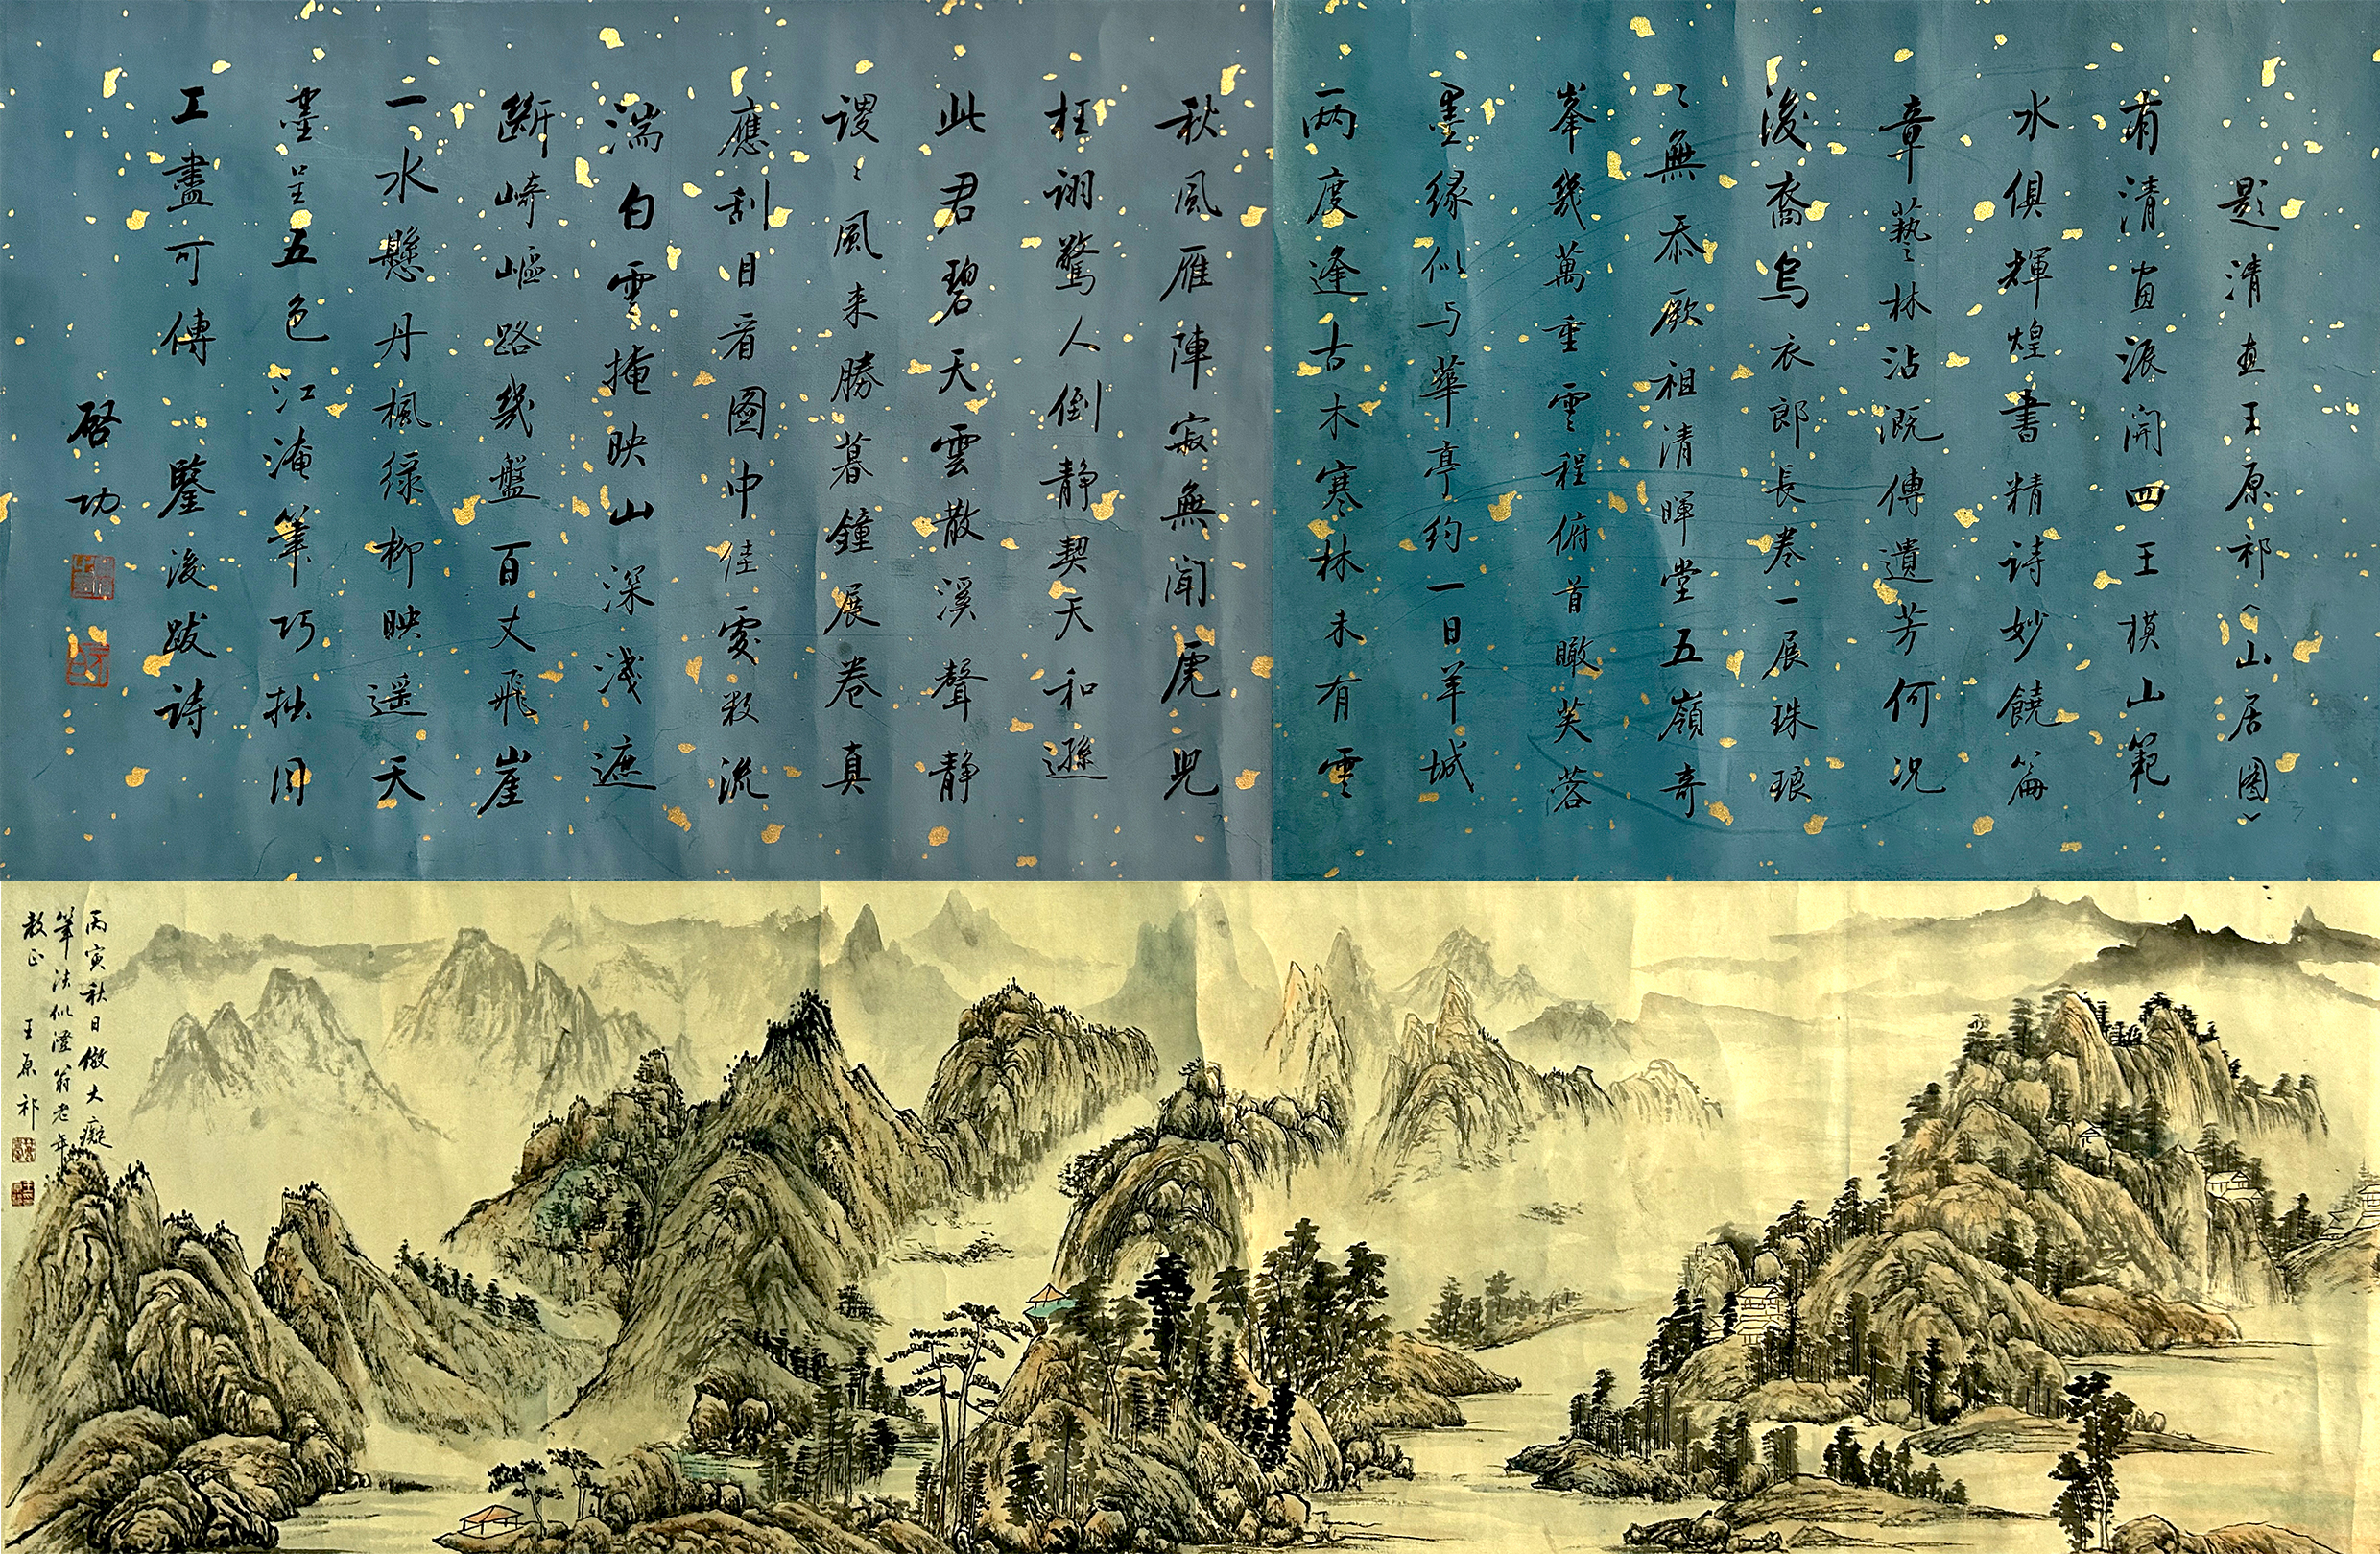 題清畫王原祁《山居圖》
有清畫派開四王模山範
水俱輝煌書精诗妙饒篇
章藝林沾溉傳遺芳何况
後裔烏衣郎長卷一展珠琅
〻無忝厥祖清暉堂五嶺奇
峯幾萬重雲程俯首瞰芙蓉
墨缘似与華亭約一日羊城
两度逢古木寒林未有雲
秋風雁陣寂無聞虎兕
枉詡驚人倒静契天和遜
此君碧天雲散溪聲静
謖〻風来勝暮鐘展卷真
應刮目看圖中佳處殺流
湍白雲掩映山深淺遮
斷崎嶇路幾盤百丈飛崖
一水懸丹楓綠柳映遥天
墨呈五色江淹筆巧拙同
工盡可傳 鑒後跋詩
啓功
丙寅秋日倣大癡
筆法似澄翁老年
教正 王原祁